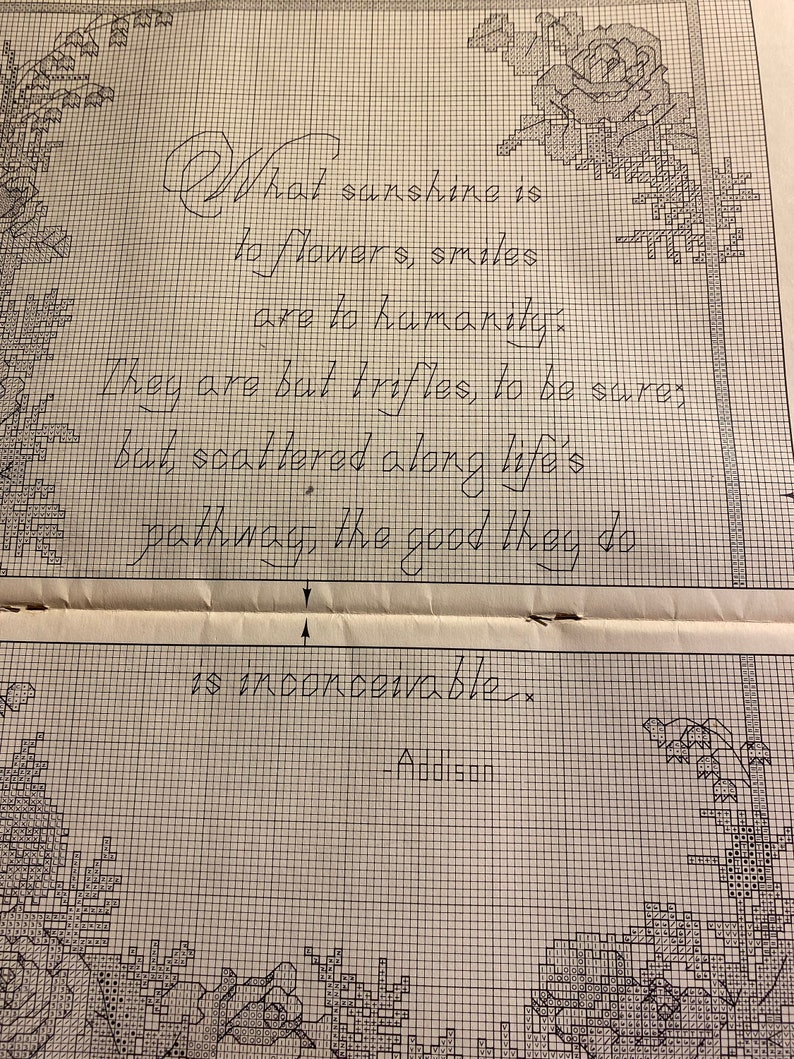 What sunshine is
to flowers, smiles
are to humanity.
They are but trifles, to be sure;
but, scattered along life's
pathway, the good they do
is inconceivable.
-Addison